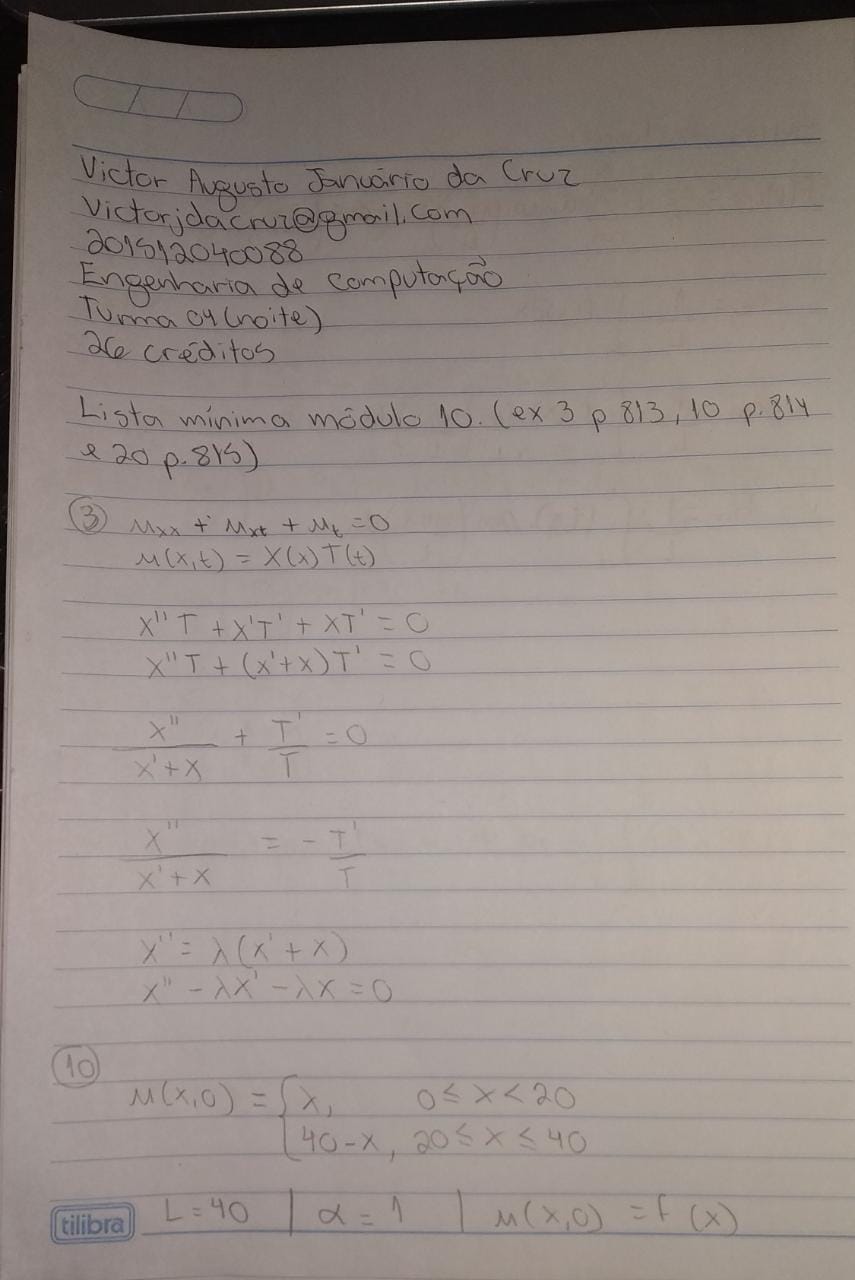 Victor Augusto Januário da Cruz
Victorjdacruz@gmail.com
201512040088
Engenharia de Computação
Turma 04 (noite)
26 créditos
Lista mínima módulo 10. (ex 3 p 813, 10 p. 814
e 20 p. 815)
③ uxx + uxt + ut = 0
u(x,t) = X(x)T(t)
X''T + X'T' + XT' = 0
X''T + (X'+X)T' = 0
X''/(X'+X) + T'/T = 0
X''/(X'+X) = - T'/T
X'' = λ(X' + X)
X'' - λX' - λX = 0
⑩
u(x,0) = { x, 0 ≤ x < 20
40-x, 20 ≤ x ≤ 40
tilibra L = 40 | α = 1 | u(x,0) = f(x)